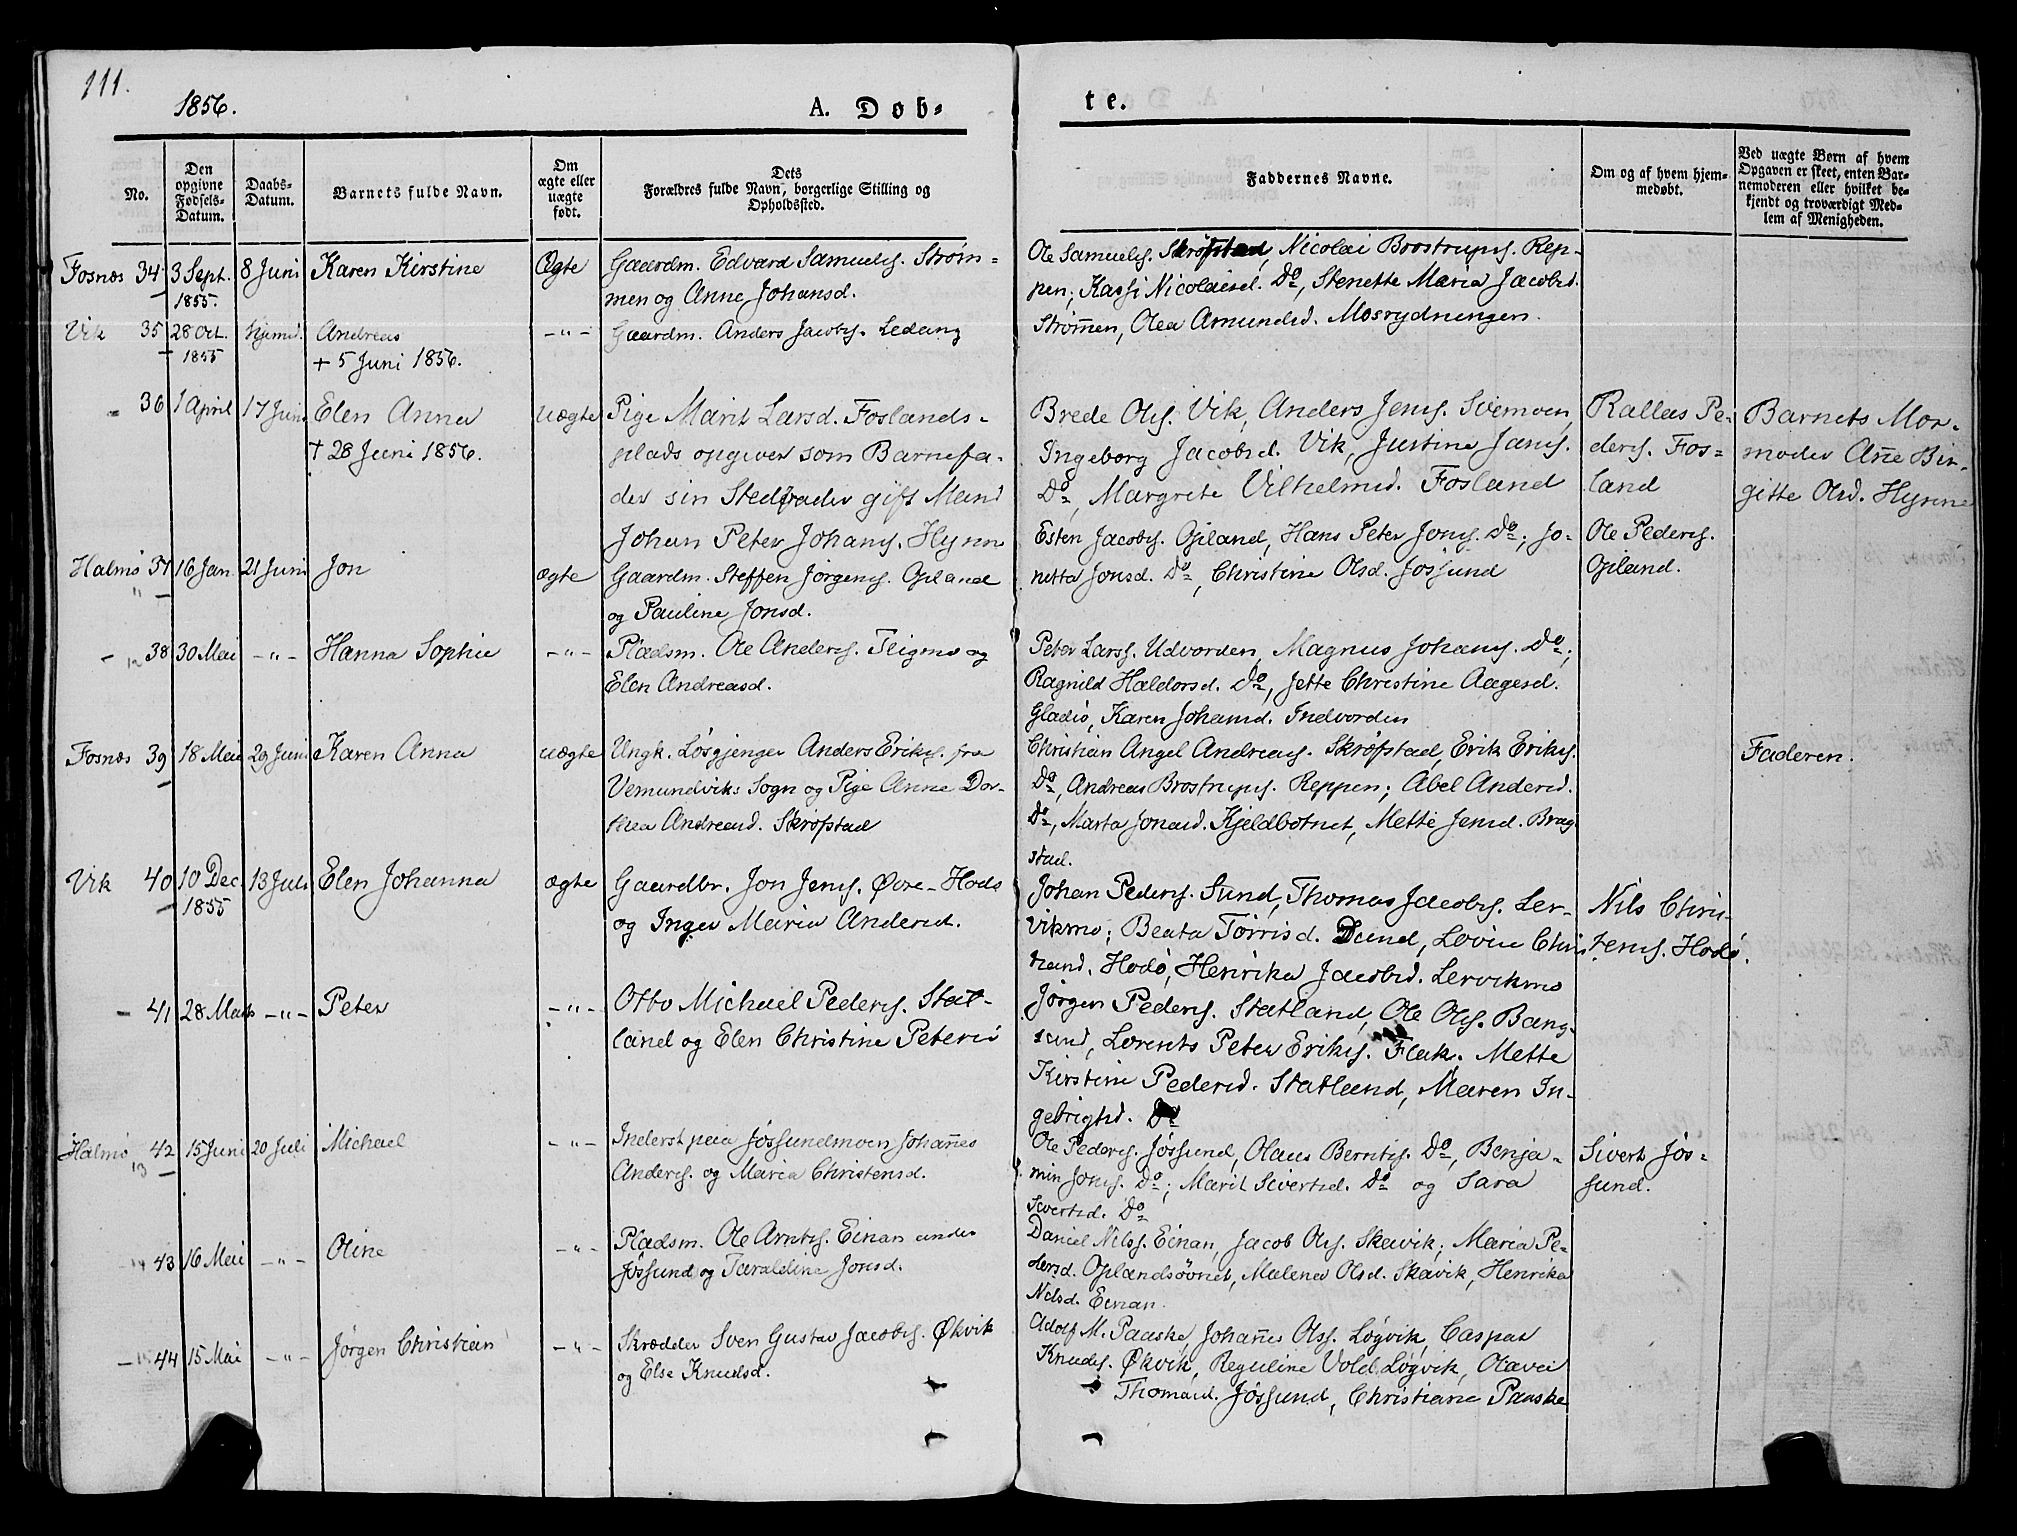 111.
1856.
A. Døb-
te.
No.
Den opgivne Fødsels-Datum.
Daabs-Datum.
Barnets fulde Navn.
Om ægte eller uægte født.
Dets Forældres fulde Navn, borgerlige Stilling og Opholdssted.
Faddernes Navne.
Om og af hvem hjem-medøbt.
Ved uægte Børn af hvem Opgaven er skeet, enten Bar-nemoderen eller hvilket be-kjendt og troværdigt Med-lem af Menigheden.
Fosnæs 34 3 Sept. 1855. 8 Juni Karen Kirstine Ægte
Gaardm. Edvard Samuels. Strøm-
men og Anne Johansd.
Ole Samuels. Skrøfstad, Nicolai Brostrups. Rep-
pen; Kassi Nicolaisd. Do, Stenette Maria Jacobsd.
Strømen, Olea Amundsd. Mosrydningen.
Vik 35 28 Oct. 1855 hjemd. Andreas -"-
+ 5 Juni 1856.
Gaardm. Anders Jacobs. Ledang
- 36 1 April 17 Juni Elen Anna uægte
† 28 Juni 1856.
Pige Marit Larsd. Foslands-
plads opgiver som Barnefa-
der sin Stedfader gift Mand
Johan Peter Johans. Hynne
Brede Ols. Vik, Anders Jens. Svemoen,
Ingeborg Jacobsd. Vik, Justine Jans.
Do, Margrete Vilhelmsd. Fosland
Rallas Pe-
ders. Fos-
land
Barnets Mor-
moder Añe Bir-
gitte Olsd. Hynne
Halmø 37 16 Jan 21 Juni Jon ægte
Gaardm. Steffen Jørgens. Opland
og Pauline Jonsd.
Esten Jacobs. Opland, Hans Peter Jons. Do; Jo-
netta Jonsd. Do, Christine Olsd. Jøssund
Ole Peders.
Opland.
- 38 30 Mai -"- Hanna Sophie -"-
Pladsm. Ole Anders. Teigmo og
Elen Andreasd.
Peter Larss. Udvorden, Magnus Johans. Do;
Ragnild Haldorsd. Do, Jette Christine Aagesd.
Gladsø, Karen Johansd. Indvorden
Fosnæs 39 18 Mai 29 Juni Karen Anna uægte
Ungk. Løsgjenger Anders Eriks. fra
Vemundviks Sogn og Pige Anne Dor-
thea Andreasd. Skrøfstad
Christian Angel Andreas. Skrøfstad, Erik Eriks.
Do, Andreas Brostrups. Reppen; Abel Andersd.
Do, Marta Jonasd. Kjeldbotnet, Mette Jensd. Brag-
stad.
Faderen.
Vik 40 10 Dec. 1855 13 Juli Elen Johanna ægte
Gaardbr. Jon Jens. Øvre-Hods
og Inger Maria Andersd.
Johan Peders. Sund, Thomas Jacobs. Ler-
vikmo; Beata Tørrisd. Sund, Lovise Chris
tiansd. Hodø, Henrika Jacobsd. Lervikmo
Nils Chris-
tens. Hodø.
- 41 28 Marts -"- Peter -"-
Otto Michael Peders. Stat-
land og Elen Christine Petersd
Jørgen Peders. Statland, Ole Ols. Bang-
sund, Lorents Peter Eriks. Flak. Mette
Kirstine Pedersd. Statland, Maren In-
gebrigtsd. Do
Halmø 42 15 Juni 20 Juli Michael -"-
Inderst paa Jøssundmoen Johañes
Anders. og Maria Christensd.
Ole Peders. Jøssund, Olaus Bernts. Do, Benja-
min Jons. Do; Marit Sivertsd. Do og Sara
Sivertsd. Do
Sivert Jøs-
sund.
43 16 Mai -"- Oline -"-
Pladsm. Ole Arnts. Einan under
Jøssund og Taraldine Jonsd.
Daniel Nilss. Einan, Jacob Ols. Skavik; Maria Pe-
dersd. Oplandsøvnet, Malena Olsd. Skavik, Henrika
Nilsd. Einan.
- 44 15 Mai -"- Jørgen Christian -"-
Skrædder Sven Gustav Jacobs. Økvik
og Else Knudsd.
Adolf M. Paaske, Johañes Olss. Løgvik, Caspar
Knuds. Økvik, Reguline Vold Løgvik, Olava
Thomasd. Jøssund, Christiane Paaske